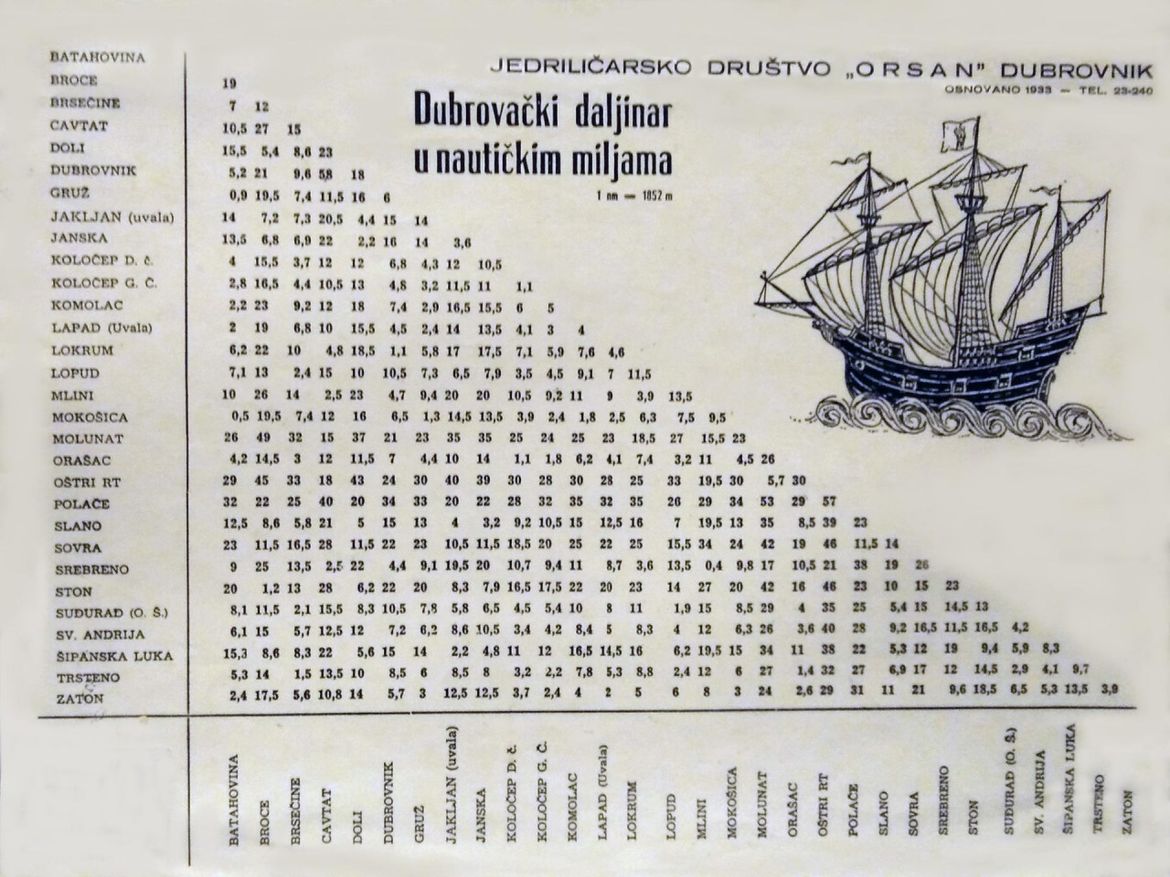 JEDRILIČARSKO DRUŠTVO „ORSAN" DUBROVNIK
OSNOVANO 1933 — TEL. 23-240
Dubrovački daljinar
u nautičkim miljama
1 nm — 1852 m
BATAHOVINA
BROCE 19
BRSEČINE 7 12
CAVTAT 10,5 27 15
DOLI 15,5 5,4 8,6 23
DUBROVNIK 5,2 21 9,6 5,8 18
GRUŽ 0,9 19,5 7,4 11,5 16 6
JAKLJAN (uvala) 14 7,2 7,3 20,5 4,4 15 14
JANSKA 13,5 6,8 6,9 22 2,2 16 14 3,6
KOLOČEP D. č. 4 15,5 3,7 12 12 6,8 4,3 12 10,5
KOLOČEP G. Č. 2,8 16,5 4,4 10,5 13 4,8 3,2 11,5 11 1,1
KOMOLAC 2,2 23 9,2 12 18 7,4 2,9 16,5 15,5 6 5
LAPAD (Uvala) 2 19 6,8 10 15,5 4,5 2,4 14 13,5 4,1 3 4
LOKRUM 6,2 22 10 4,8 18,5 1,1 5,8 17 17,5 7,1 5,9 7,6 4,6
LOPUD 7,1 13 2,4 15 10 10,5 7,3 6,5 7,9 3,5 4,5 9,1 7 11,5
MLINI 10 26 14 2,5 23 4,7 9,4 20 20 10,5 9,2 11 9 3,9 13,5
MOKOŠICA 0,5 19,5 7,4 12 16 6,5 1,3 14,5 13,5 3,9 2,4 1,8 2,5 6,3 7,5 9,5
MOLUNAT 26 49 32 15 37 21 23 35 35 25 24 25 23 18,5 27 15,5 23
ORAŠAC 4,2 14,5 3 12 11,5 7 4,4 10 14 1,1 1,8 6,2 4,1 7,4 3,2 11 4,5 26
OŠTRI RT 29 45 33 18 43 24 30 40 39 30 28 30 28 25 33 19,5 30 5,7 30
POLAČE 32 22 25 40 20 34 33 20 22 28 32 35 32 35 26 29 34 53 29 57
SLANO 12,5 8,6 5,8 21 5 15 13 4 3,2 9,2 10,5 15 12,5 16 7 19,5 13 35 8,5 39 23
SOVRA 23 11,5 16,5 28 11,5 22 23 10,5 11,5 18,5 20 25 22 25 15,5 34 24 42 19 46 11,5 14
SREBRENO 9 25 13,5 2,5 22 4,4 9,1 19,5 20 10,7 9,4 11 8,7 3,6 13,5 0,4 9,8 17 10,5 21 38 19 26
STON 20 1,2 13 28 6,2 22 20 8,3 7,9 16,5 17,5 22 20 23 14 27 20 42 16 46 23 10 15 23
SUĐURAĐ (O. Š.) 8,1 11,5 2,1 15,5 8,3 10,5 7,8 5,8 6,5 4,5 5,4 10 8 11 1,9 15 8,5 29 4 35 25 5,4 15 14,5 13
SV. ANDRIJA 6,1 15 5,7 12,5 12 7,2 6,2 8,6 10,5 3,4 4,2 8,4 5 8,3 4 12 6,3 26 3,6 40 28 9,2 16,5 11,5 16,5 4,2
ŠIPANSKA LUKA 15,3 8,6 8,3 22 5,6 15 14 2,2 4,8 11 12 16,5 14,5 16 6,2 19,5 15 34 11 38 22 5,3 12 19 9,4 5,9 8,3
TRSTENO 5,3 14 1,5 13,5 10 8,5 6 8,5 8 3,2 2,2 7,8 5,3 8,8 2,4 12 6 27 1,4 32 27 6,9 17 12 14,5 2,9 4,1 9,7
ZATON 2,4 17,5 5,6 10,8 14 5,7 3 12,5 12,5 3,7 2,4 4 2 5 6 8 3 24 2,6 29 31 11 21 9,6 18,5 6,5 5,3 13,5 3,9
BATAHOVINA
BROCE
BRSEČINE
CAVTAT
DOLI
DUBROVNIK
GRUŽ
JAKLJAN (uvala)
JANSKA
KOLOČEP D. č.
KOLOČEP G. Č.
KOMOLAC
LAPAD (Uvala)
LOKRUM
LOPUD
MLINI
MOKOŠICA
MOLUNAT
ORAŠAC
OŠTRI RT
POLAČE
SLANO
SOVRA
SREBRENO
STON
SUĐURAĐ (O. Š.)
SV. ANDRIJA
ŠIPANSKA LUKA
TRSTENO
ZATON